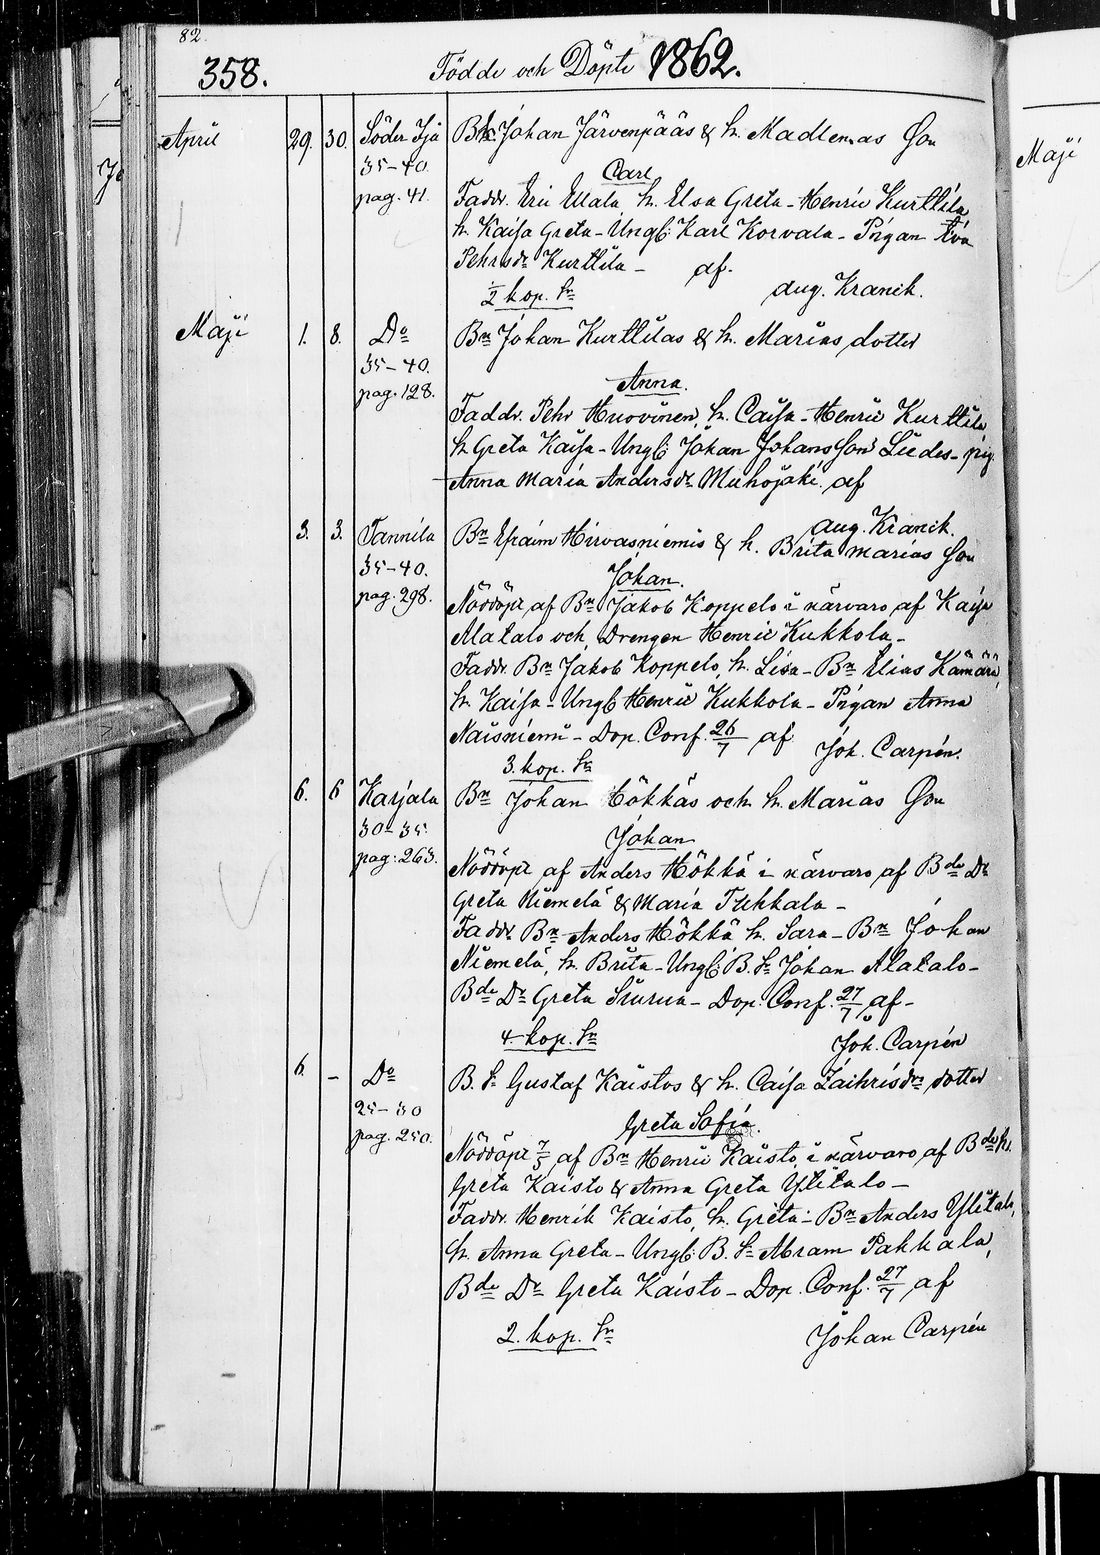 82.
358. Födde och Döpte 1862.
April 29. 30. Söder Ijå Johan Järvenpääs & h. Madlenas Son
35-40. Carl
pag. 41. Faddr. Eric Ellala h. Elsa Greta - Henric Kurttila
h. Kaisa Greta - Ungk: Karl Korvala - Pigan Eva
Pehrsdr Kurttila - af.
2 kop. Sr aug. Kranck.
Maji 1. 8. Do Bn Johan Kurttilas & h. Marias dotter
35-40. Anna.
pag. 128. Faddr. Pehr Huovinen, h. Caisa - Henric Kurttila
h. Greta Kaisa - Ungk: Johan Johansson Liedes - pig.
Anna Maria Andersdr Muhojoki. af
aug. Kranck.
3. 3. Tannila Bn Efraim Hirvasniemis & h. Brita Marias Son
35-40. Johan.
pag. 298. Nöddöpt af Bn Jakob Koppelo i närvaro af Kaisa
Alatalo och Drengen Henric Kukkola -
Faddr. Bn Jakob Koppelo, h. Lisa - Bn Elias Kämärä,
h. Kaisa - Ungk Henric Kukkola - Pigan Anna
Naisniemi - Dop. Conf. 26/7 af Joh. Carpén.
3. kop. Sr
6. 6 Karjala Bn Johan Hökkäs och h. Marias Son
30-35. Johan
pag: 263. Nöddöpt af Anders Hökkä i närvaro af Bde Dr
Greta Niemelä & Maria Tukkala -
Faddr. Bn Anders Hökkä h. Sara - Bn Johan
Niemelä, h. Brita - Ungk: B. Sn Johan Alatalo -
Bde Dr Greta Siurua - Dop. Conf. 27/7 af -
4. kop. Sr Joh. Carpén
6. - Do B. Sn Gustaf Kaistos & h. Caisa Zaihrisdrs dotter
25-30 Greta Sofia.
pag. 250. Nöddöpt 7/5 af Bn Henric Kaisto, i närvaro af Bde h.
Greta Kaisto & Anna Greta Ylitalo -
Faddr. Henrik Kaisto, h. Greta - Bn Anders Ylitalo,
h. Anna Greta - Ungk: B. Sn Abram Pakkala,
Bde Dr Greta Kaisto - Dop. Conf. 27/7 af
2. kop. Sr Johan Carpén
Maji